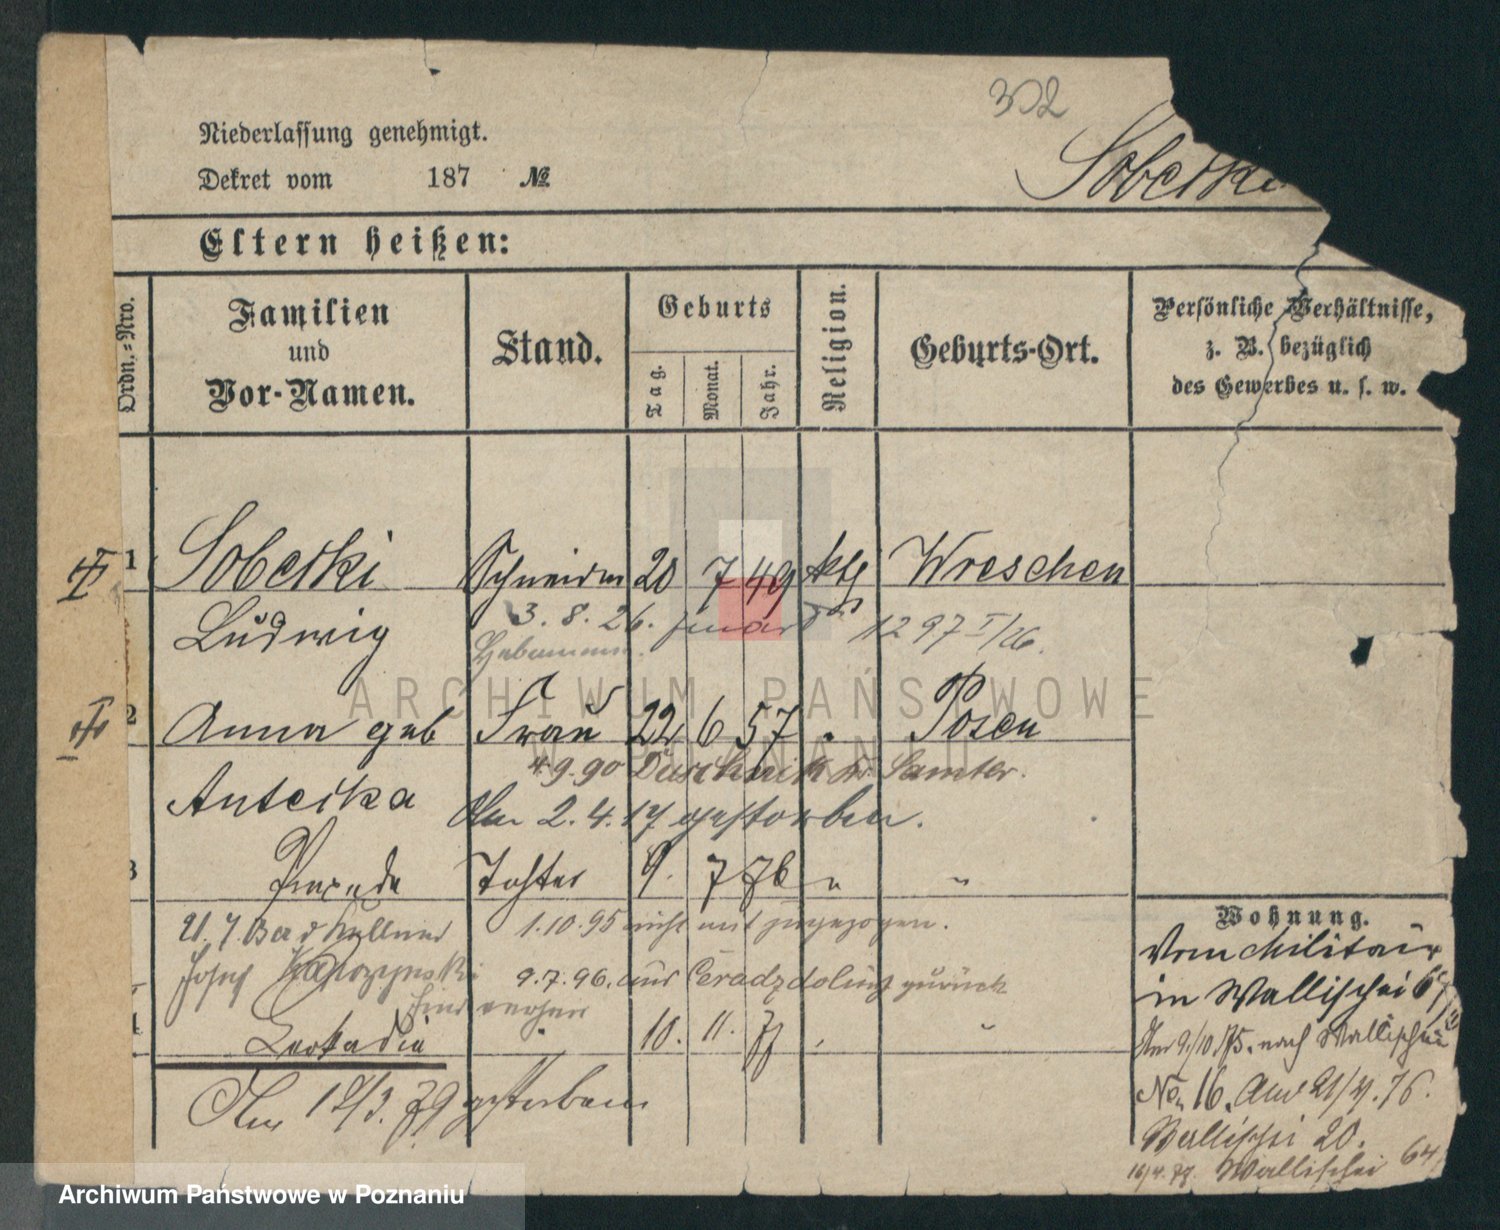 302
Sobeski
Niederlassung genehmigt.
Dekret vom 187 №
Eltern heißen:
Ordn.-Nro.
Familien
und
Vor-Namen.
Stand.
Geburts
Tag. Monat. Jahr.
Religion.
Geburts-Ort.
Persönliche Verhältnisse,
z. B. bezüglich
des Gewerbes u. s. w.
1 Sobeski Schneider 20 7 49 ktl Wreschen
Ludwig 3. 8. 26. 1297 I/26.
Hebamme.
2 Anna geb Frau 22 6 57 " Posen
4.9.90 Duschnik Kr. Samter.
Anteska Am 2.4.17 gestorben.
3 Praxeda Tochter 9. 7 76 " "
21.7. 1.10.95 nicht mit zugezogen.
Josef 9.7.96. aus zurück
4 Leokadia " 10. 11. 77 " "
Am 19/3. 79 gestorben
Wohnung.
Vom Militair
in Wallischei 67
Am 9/10. 75. nach Wallischei
No. 16. Am 21/4. 76.
Wallischei 20.
16/4. 79. Wallischei 64
ARCHIWUM PAŃSTWOWE
W POZNANIU
Archiwum Państwowe w Poznaniu